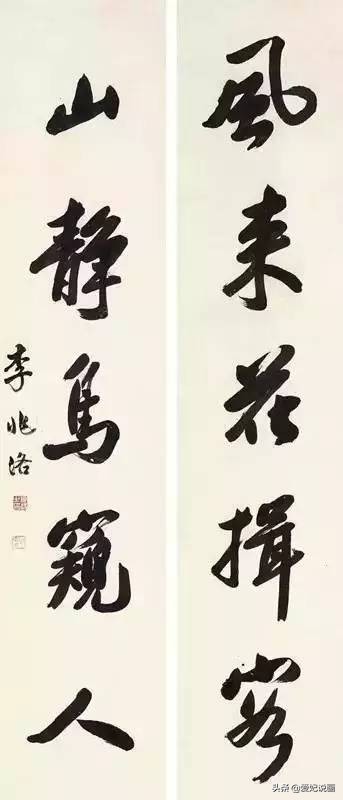 風来花揖客
山靜鳥窺人
李兆洛
头条 @爱妃说画